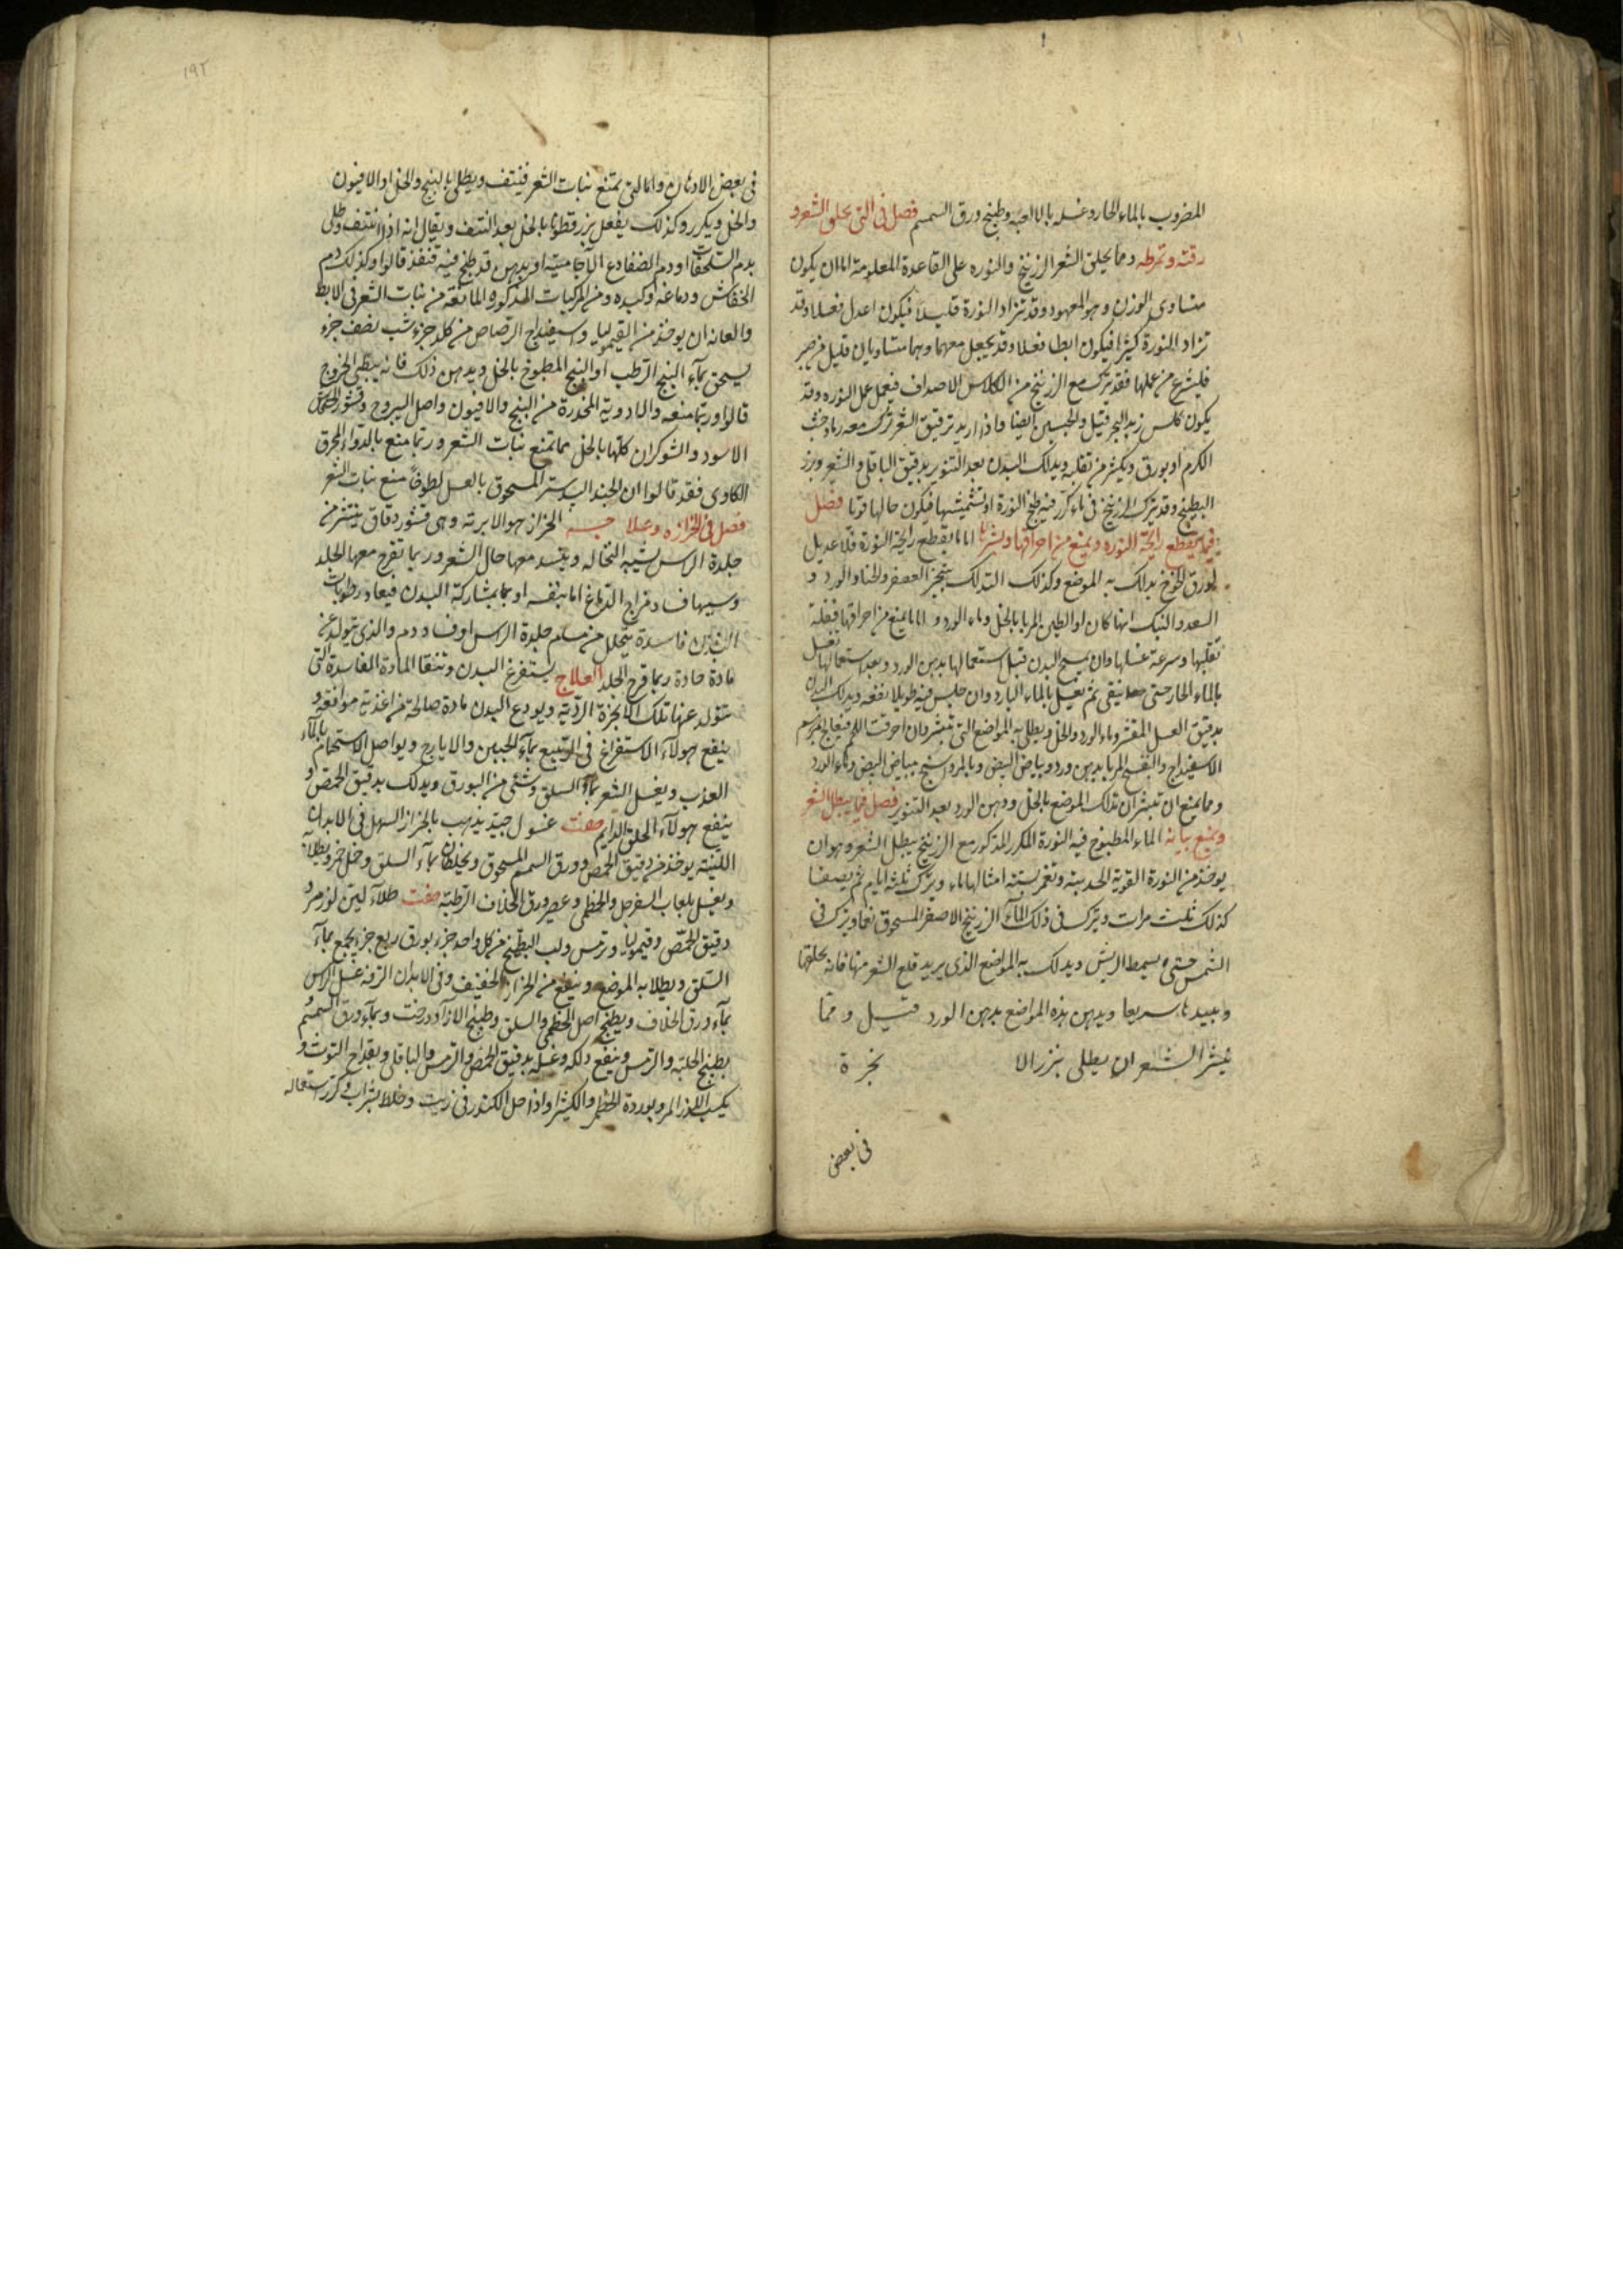 المضروب بالماء الحار وغسله بالالعبه وطبيخ ورق السمسم فصل فى التى يحلق الشعر و
رقته وتمرطه ومما يحلق الشعر الزرنيخ والنوره على القاعدة المعلومة اما ان يكون
متساوى الوزن وهو المعهود وقد تزاد النورة قليلا فيكون اعدل فعلا وقد
تزاد النورة كثيرا فيكون ابطا فعلا وقد يجعل معهما وهما متساويان قليل من صبر
فليشرع من عملها فقد ترك مع الزرنيخ من الكلاس الاصداف فيعمل عمل النوره وقد
يكون كلس زبد البحر قتيل والجبسين ايضا واذا اريد ترقيق الشعر ترك معه رماد خشب
الكرم او بورق ويكثر من تقلبه ويدلك البدن بعد التنوير بدقيق الباقلى والشعير وبزر
البطيخ وقد يترك الزرنيخ فى ماء كرر فيه طبخ النورة او تشميسها فيكون حالها قويا فصل
فيما يقطع رايحة النوره ويمنع من احراقها وبثرها اما ما يقطع رايحة النورة فلا عديل
لورق الخوخ يدلك به الموضع وكذلك التدلك بثجير العصفر والحنا والورد و
السعد والنبك ايها كان او الطين المربا بالخل وماء الورد واما ما يمنع من احراقها فقلة
تقليبها وسرعة غسلها وان يمسح البدن قبل استعمالها بدهن الورد وبعد استعمالها تغسل
بالماء الحار حتى ينقى ثم تغسل بالماء البارد وان جلس فيه طويلا نفعه ويدلك البدن
بدقيق العدس المقشر وماء الورد والخل ويطلى به المواضع التى تبثر وان احرقت اللحم فيعالج بمرهم
الاسفيداج والبنفسج المربا بدهن ورد وبياض البيض وبالمرداسنج ببياض البيض وماء الورد
ومما يمنع ان تبثر ان تدلك الموضع بالخل ودهن الورد بعد التنوير فصل فيما يبطل الشعر
ويمنع بباته الماء المطبوخ فيه النورة المكرر المذكور مع الزرنيخ يبطل الشعر وهو ان
يوخذ من النورة القوية الحديثة وتغمر بستة امثالها ماء ويترك ثلثة ايام ثم يصفا
كذلك ثلث مرات ويترك فى ذلك الماء الزرنيخ الاصفر المسحوق نعما ويترك فى
الشمس حتى يسمط الريش ويدلك به المواضع الذى يريد قلع الشعر منها فانه يحلقها
وايبيدها سريعا ويدهن بهذه المواضع بدهن الورد قتيل ومما
ينثر الشعر ان يطلى ببزر الا نجرة
فى بعض
١٩٢
فى بعض الادهان واما التى تمنع نبات الشعر فينتف ويطلى بالبنج والخل او الافيون
والخل ويكرر وكذلك يفعل بزر قطونا بالخل بعد النتف ويقال انه اذا انتتف وطلى
بدم السلحفات او دم الضفادع الآجامية او بدهن قد طبخ فيه قنفذ قالوا وكذلك دم
الخفاش ودماغه وكبده ومن المركبات المذكوره المانعة من نبات الشعر فى الابط
والعانه ان يوخذ من القيموليا واسفيداج الرصاص من كل جزء شب نصف جزء
يسحق بماء البنج الرطب او البنج المطبوخ بالخل ويدهن ذلك فانه يبطى الخروج
قالوا وربما منعه والادوية المخدرة من البنج والافيون واصل اليبروح وقشور الخشخاش
الاسود والشوكران كلها بالخل مما تمنع نبات الشعر وربما منع بالدواء المحرق
الكاوى فقد قالوا ان الجندبيدستر المسحوق بالعسل لطوخا منع نبات الشعر
فصل فى الحزازه وعلاجه الحزاز هو الابرته وهى قشور دقاق ينتثر من
جلدة الراس شبيه النخاله ويفسد معها حال الشعر وربما تقرح معها الجلد
وسببها فساد مزاج الدماغ اما بنفسه او بما بمشاركة البدن فيعاد رطوبات
البدن فاسدة يتحلل من مسام جلدة الراس او فساد دم والذى يتولد عنه
مادة حادة ربما قرح الجلد العلاج يستفرغ البدن وتنقا المادة الفاسدة التى
يتولد عنها تلك الابخرة الردية ويودع البدن مادة صالحة من اغذية موافقة و
ينفع هولاء الاستفراغ فى الربيع بماء الجبين والايارج ويواصل الاستحمام بالماء
العذب ويغسل الشعر بماء السلق وشئ من البورق ويدلك بدقيق الحمص و
ينفع هولاء الحلق الدايم صفت غسول جيد يذهب بالحزاز السهل فى الابدان
اللينة يوخذ من دقيق الحمص وورق السمسم المسحوق ويخلطان بماء السلق وخل خمر ويطلا
ويغسل بلعاب السفرجل والخطمى وعصير ورق الخلاف الرطبه صفت طلاء لين لوز مر و
دقيق الحمص وقيموليا وترمس ولب البطيخ من كل واحد جزء بورق ربع جزء يجمع بماء
السلق ويطلا به الموضع وينفع من الحزاز الخفيف وفى الابدان الترفه غسل الراس
بماء ورق الخلاف ويطبخ اصل الخطمى والسلق وطبيخ الازادرخت وبماء ورق السمسم و
بطبيخ الحلبة والترمس وينفع دلكه وغسله بدقيق الحمص والترمس والباقلى وبقداح التوث و
بكسب اللوز المر وبوردة الخطمى والكثيرا واذا حل الكندر فى زيت وخلط بشراب وكرر استعماله